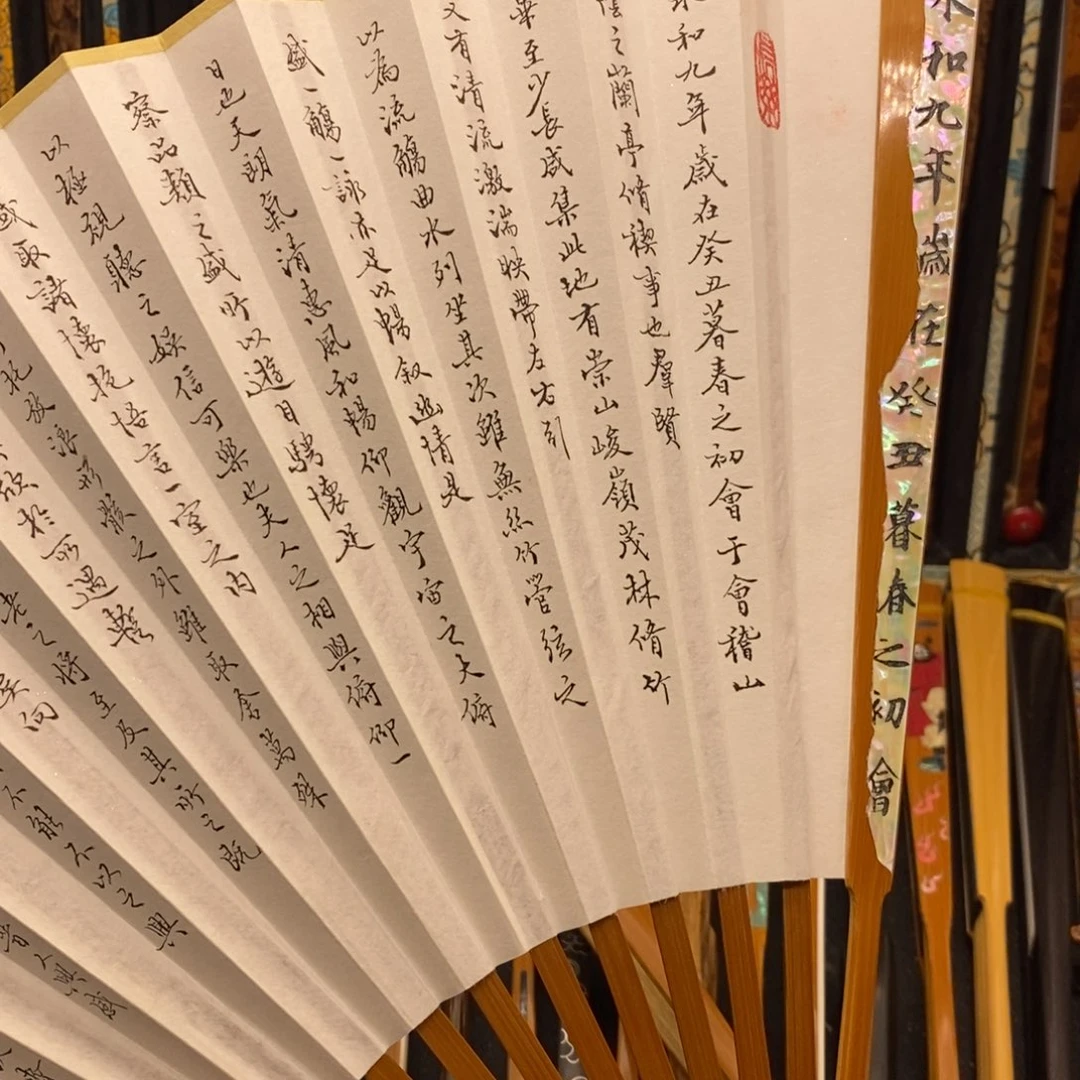 永和九年歲在癸丑暮春之初會
永和九年歲在癸丑暮春之初會于會稽山
陰之蘭亭脩禊事也羣賢
畢至少長咸集此地有崇山峻嶺茂林脩竹
又有清流激湍映帶左右引
以為流觴曲水列坐其次雖無絲竹管弦之
盛一觴一詠亦足以暢叙幽情是
日也天朗氣清惠風和暢仰觀宇宙之大俯
察品類之盛所以遊目騁懷足
以極視聽之娛信可樂也夫人之相與俯仰一
或取諸懷抱悟言一室之内
託放浪形骸之外雖取舍萬殊
欣於所遇暫
老之將至及其所之既
矣向
不能不以之興
昔人興感